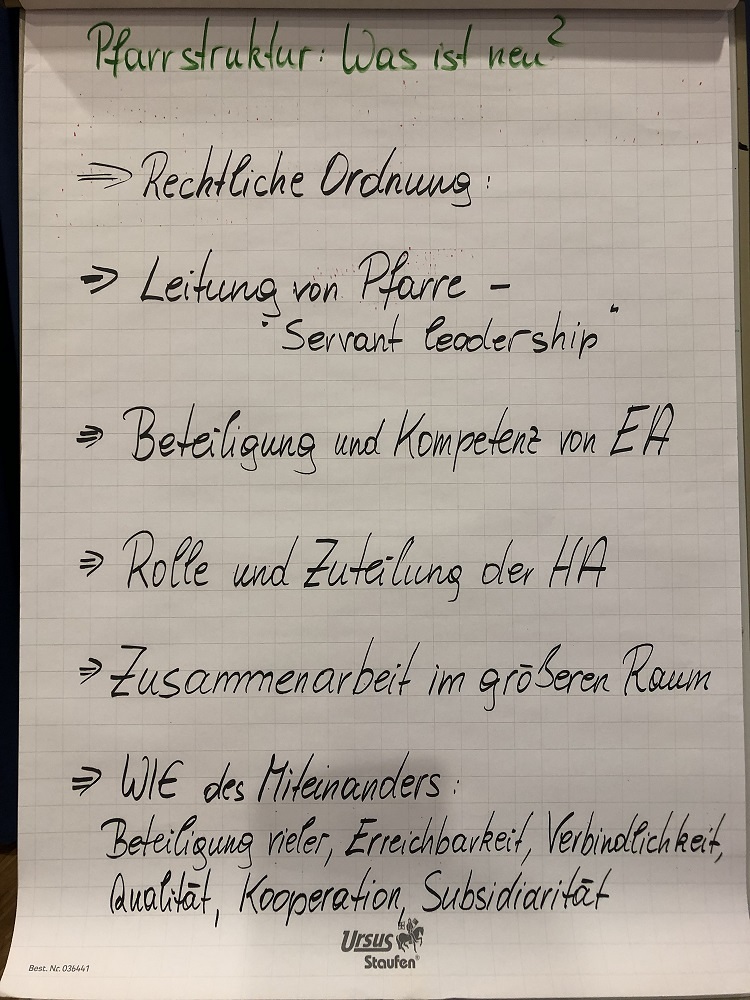 Pfarrstruktur: Was ist neu?
⇒ Rechtliche Ordnung:
⇒ Leitung von Pfarre –
"Servant leadership"
⇒ Beteiligung und Kompetenz von EA
⇒ Rolle und Zuteilung der HA
⇒ Zusammenarbeit im größeren Raum
⇒ WIE des Miteinanders:
Beteiligung vieler, Erreichbarkeit, Verbindlichkeit,
Qualität, Kooperation, Subsidiarität
Ursus
Staufen®
Best. Nr. 036441